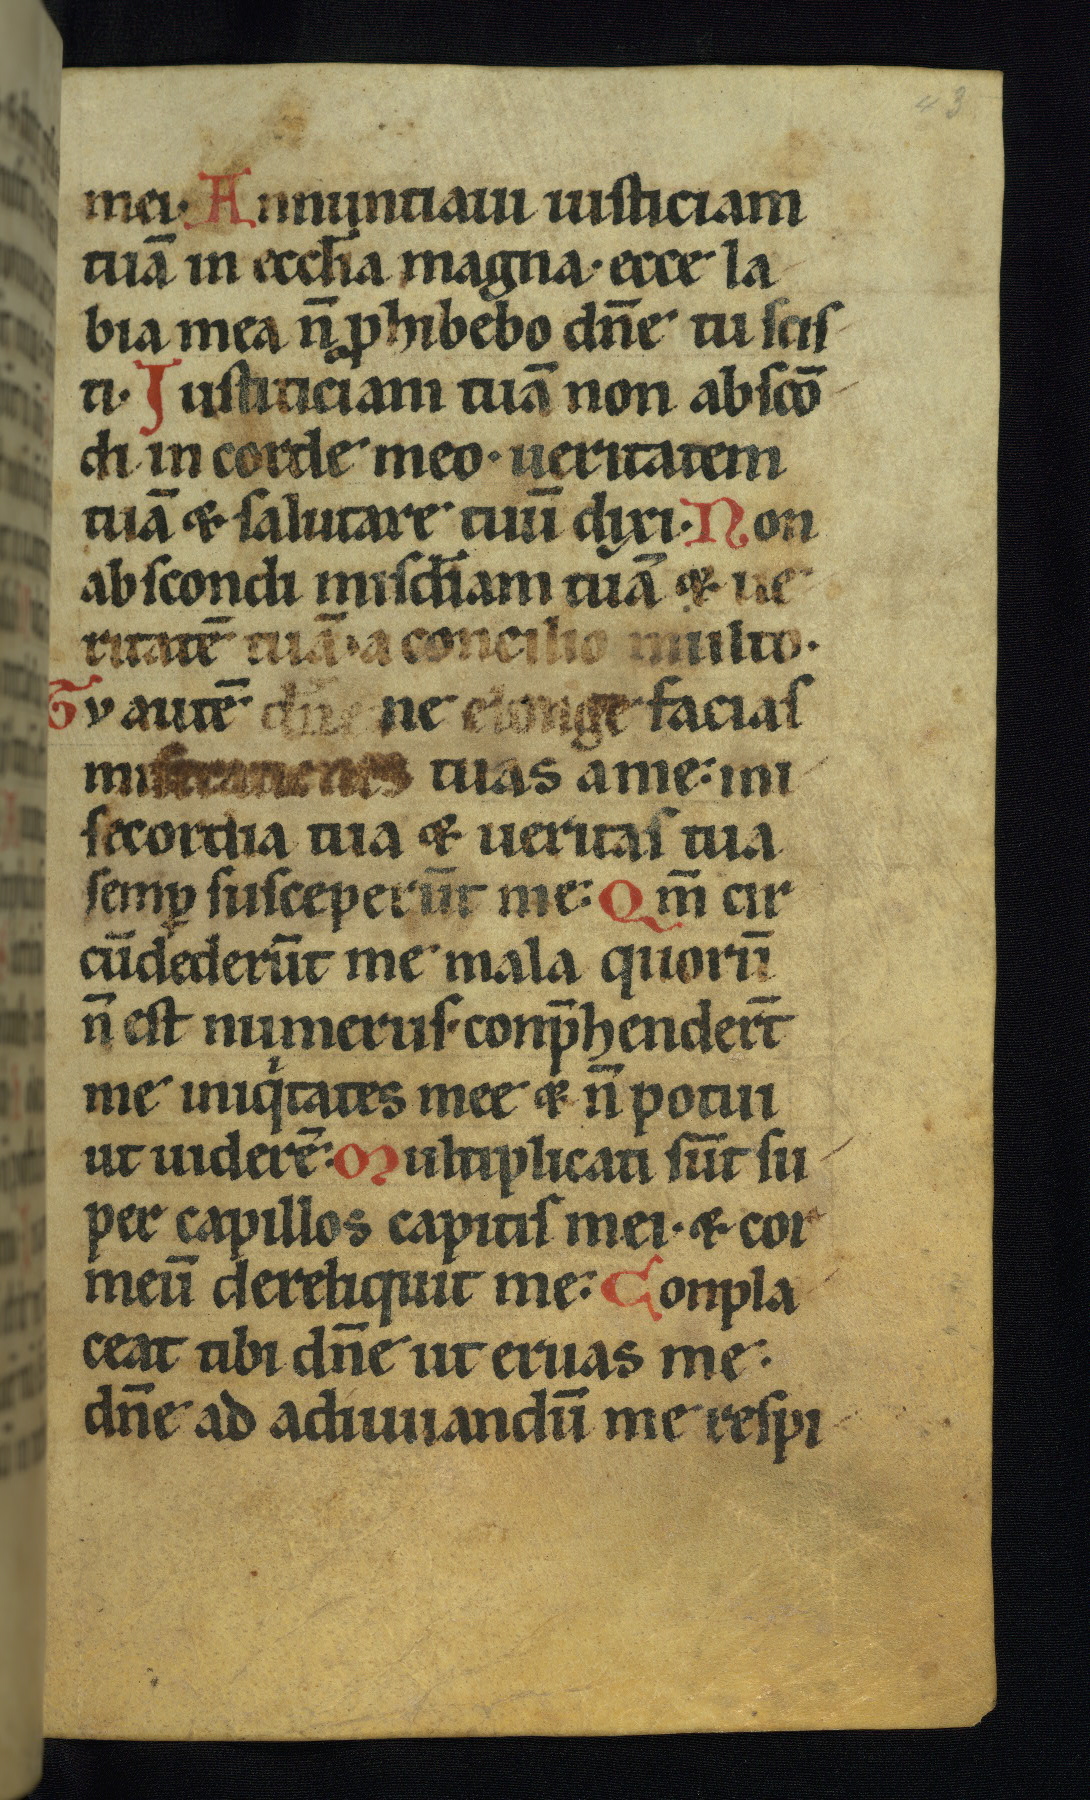 43
mei. Annuntiaui iusticiam
tuā in ecclīa magna. ecce la
bia mea n̄ ꝓhibebo dn̄e tu scis
ti. Iustiticiam tuā non abscō
di in corde meo. ueritatem
tuā & salutare tuū dixi. Non
abscondi misc̄diam tuā & ue
ritatē tuā. a concilio multo.
Tv autē dn̄e ne elonge facias
miserationes tuas a me: mi
secordia tua & ueritas tua
semꝑ susceperūt me: Qm̄ cir
cūdederūt me mala quorū
n̄ est numerus. conp̄hendert̄
me iniqⁱtates mee & n̄ potui
ut uiderē: Multiplicati sūt su
per capillos capitis mei. & cor
meū dereliquit me: Conpla
ceat tibi dn̄e ut eruas me.
dn̄e ad adiuuandū me respi